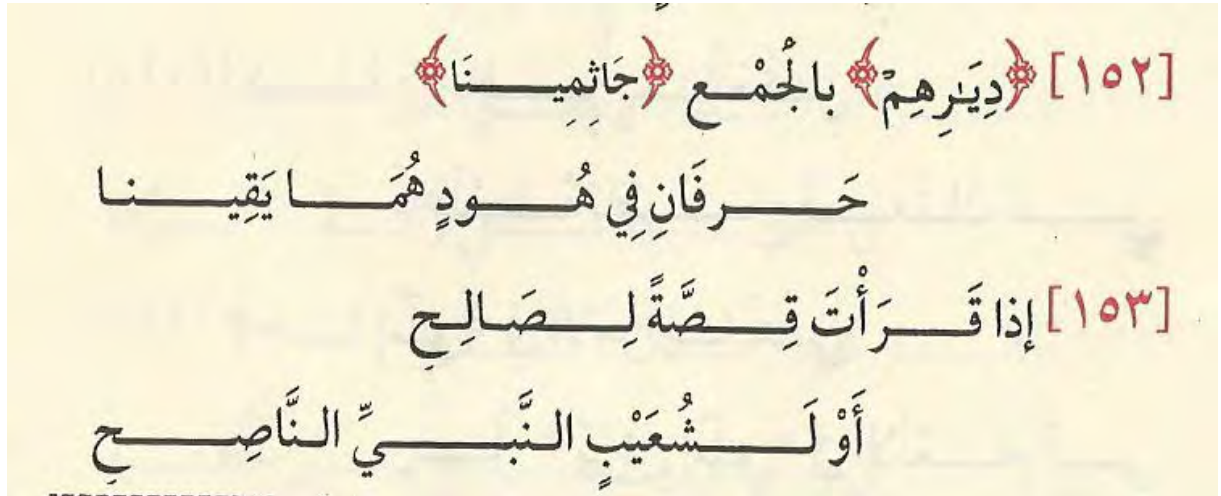 [١٥٢] ﴿دِيَـٰرِهِمْ﴾ بالْجُمْـع ﴿جَاثِمِيـنَا﴾
حَـرفَانِ فِي هُـودٍ هُمَـا يَقِيـنـا
[١٥٣] إذا قَـرَأْتَ قِـصَّةً لِـصَالِـحِ
أَوْ لَـشُعَيْبٍ النَّبـيِّ النَّاصِـحِ